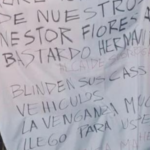 DE NUESTRO
NESTOR FLORES
BASTARDO HERMAN
BLINDEN SUS CASAS
VEHICULOS
LA VENGANZA
LLEGO PARA USTE